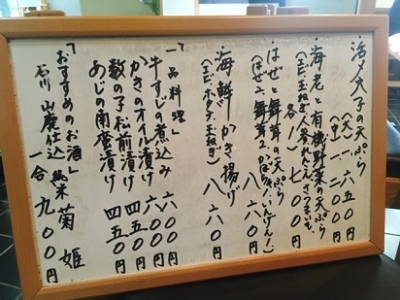 活〆穴子の天ぷら
(大) 一、六五〇円
(中) 一、二〇〇円
海老と有機野菜の天ぷら
(エビ、玉ねぎ、人参、れんこん、さつまいも)
各1ヶ 一、七〇〇円
はぜと舞茸の天ぷら
(はぜ2、舞茸2、かぼちゃ、いんげん!)
八六〇円
海鮮かき揚げ
(エビ、ホタテ、玉ねぎ)
八六〇円
「一品料理」
牛すじの煮込み 六〇〇円
かきのオイル漬け 六〇〇円
数の子松前漬け 四五〇円
あじの南蛮漬け 四五〇円
「おすすめのお酒」
石川 山廃仕込 純米 菊姫
一合 九〇〇円